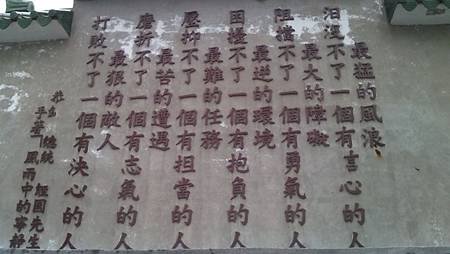 最猛的風浪
汩沒不了一個有信心的人
最大的障礙
阻擋不了一個有勇氣的人
最逆的環境
困擾不了一個有抱負的人
最難的任務
壓抑不了一個有担當的人
最苦的遭遇
磨折不了一個有志氣的人
最狠的敵人
打敗不了一個有決心的人
恭錄 總統 經國先生
手著 風雨中的寧靜